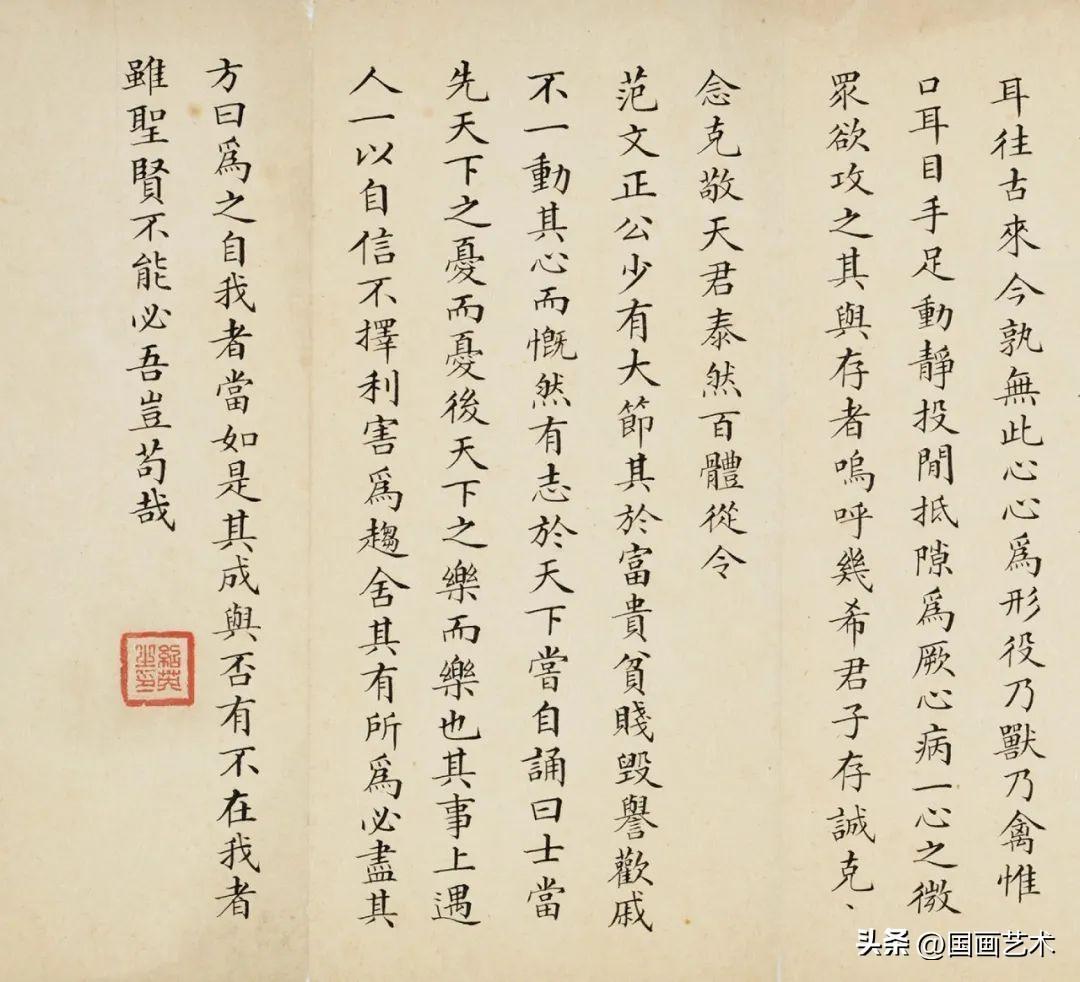 耳往古來今孰無此心心爲形役乃獸乃禽惟
口耳目手足動靜投閒抵隙爲厥心病一心之微
眾欲攻之其與存者嗚呼幾希君子存誠克、
念克敬天君泰然百體從令
范文正公少有大節其於富貴貧賤毀譽歡戚
不一動其心而慨然有志於天下嘗自誦曰士當
先天下之憂而憂後天下之樂而樂也其事上遇
人一以自信不擇利害爲趨舍其有所爲必盡其
方曰爲之自我者當如是其成與否有不在我者
雖聖賢不能必吾豈苟哉
头条 @国画艺术